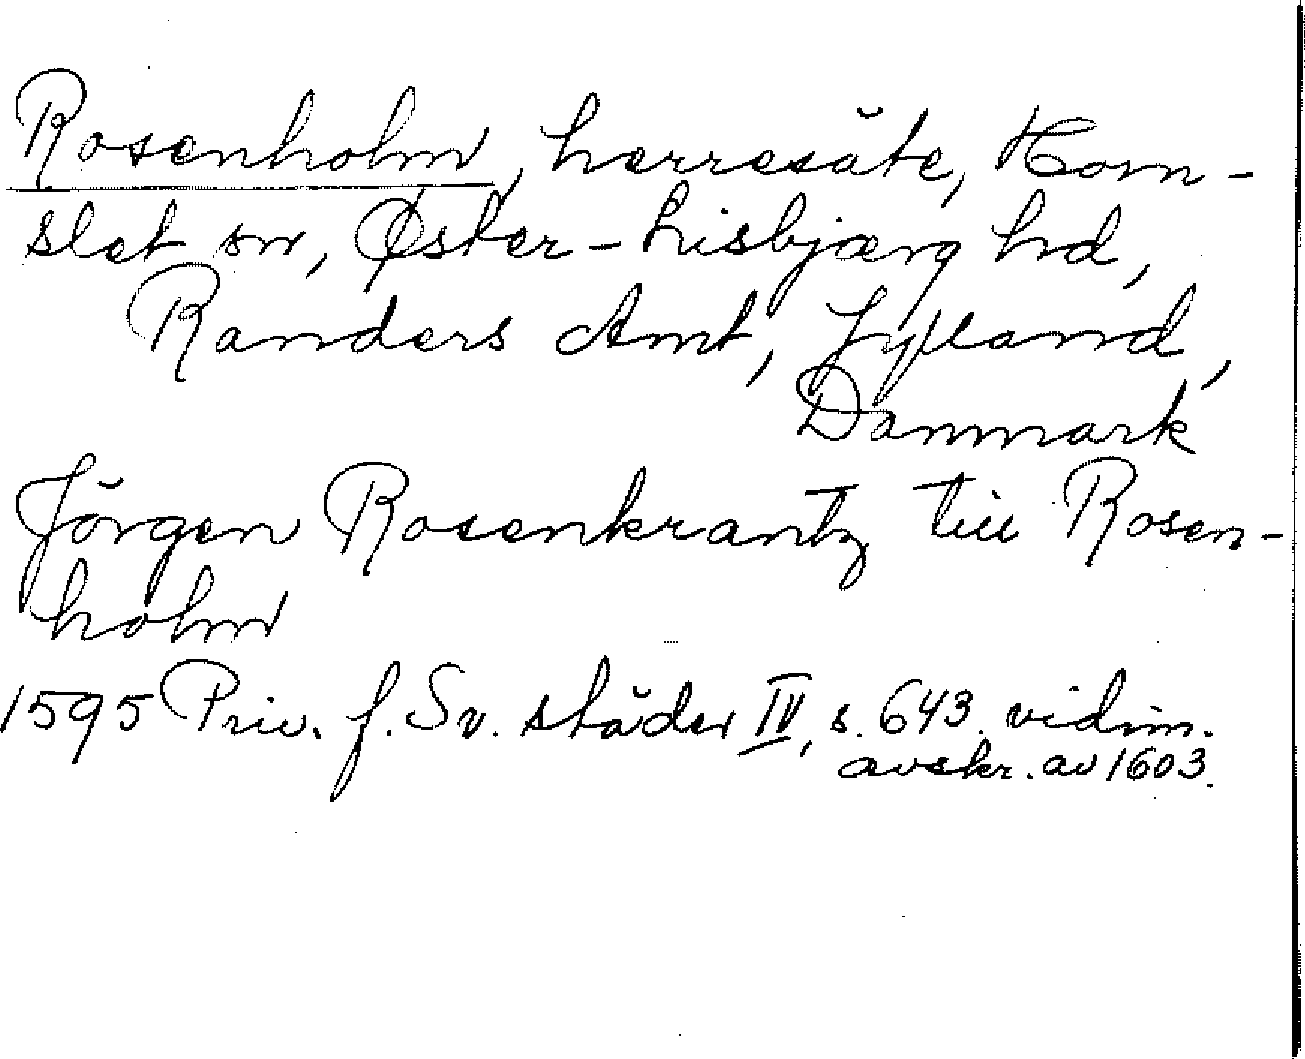 Rosenholm, herresäte, Horn-
slet sn, Øster-Lisbjærg hd,
Randers Amt, Jylland,
Danmark
Jörgen Rosenkrantz till Rosen-
holm
1595 Priv. f. Sv. städer IV, s. 643. vidim.
avskr. av 1603.